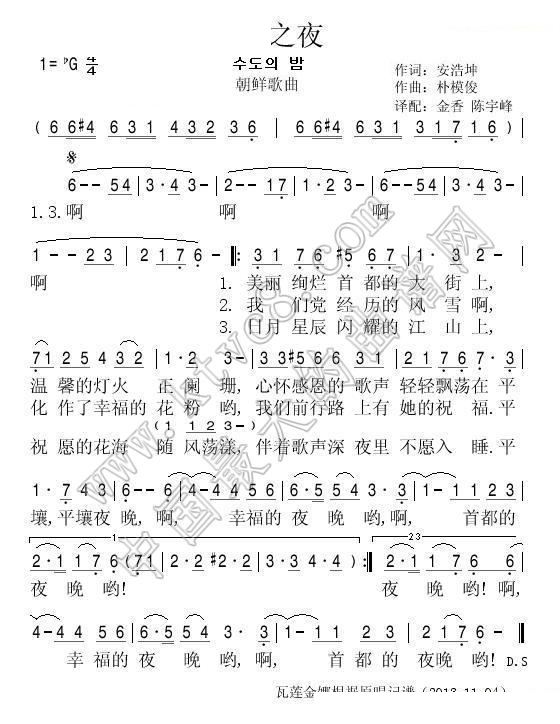 之夜
수도의 밤
朝鲜歌曲
1=♭G 4/4
作词：安浩坤
作曲：朴模俊
译配：金香 陈宇峰
( 6 6♯4 6 3 1 4 3 2 3 6 | 6 3 1 6♯4 6 3 1 3 1 7 1 6 )
6-- 5 4 | 3·4 3- | 2-- 1 7 | 1·2 3- |
1.3.啊 啊 啊
1-- 2 3 | 2 1 7 6- :‖: 3 1 7 6 ♯5 6 7 | 1· 3 2- |
啊 1. 美丽 绚烂 首 都的 大 街 上,
2. 我 们党 经 历的 风 雪 啊,
3. 日月 星辰 闪 耀的 江 山 上,
7 1 2 5 4 3 2 | 1·2 3- | 3 3♯5 6 6 3 1 | 2 1 7 6 7·3 |
温 馨的灯火 正 阑 珊, 心怀感恩的 歌声 轻轻飘荡在 平
化 作了幸福的 花 粉 哟, 我们前行路 上有 她的祝 福.平
(1 1 2 3-)
祝 愿的花海 随 风荡漾, 伴着歌声深 夜里 不愿入 睡.平
1·7 4 3 | 6-- 6 | 4-4 5 6 | 6·5 5 4 3 | 1-1 1 2 3 |
壤,平壤夜 晚, 啊, 幸福的 夜 晚 哟,啊, 首都的
1
2 3
2·1 1 7 6 | 6 (7 1 | 2·2 3- | 3·3 4·4 ) :‖ 2·1 1 7 6 6 |
夜 晚 哟! 夜 晚 哟! 啊,
4-4 4 5 6 | 6·5 5 4 3 | 3·3 | 1-1 1 2 3 | 2 1 7 6· ‖
幸 福的 夜 晚 哟, 啊, 首 都 的 夜晚 哟! D.S
www.ktvc8.com
中国最大的曲谱网